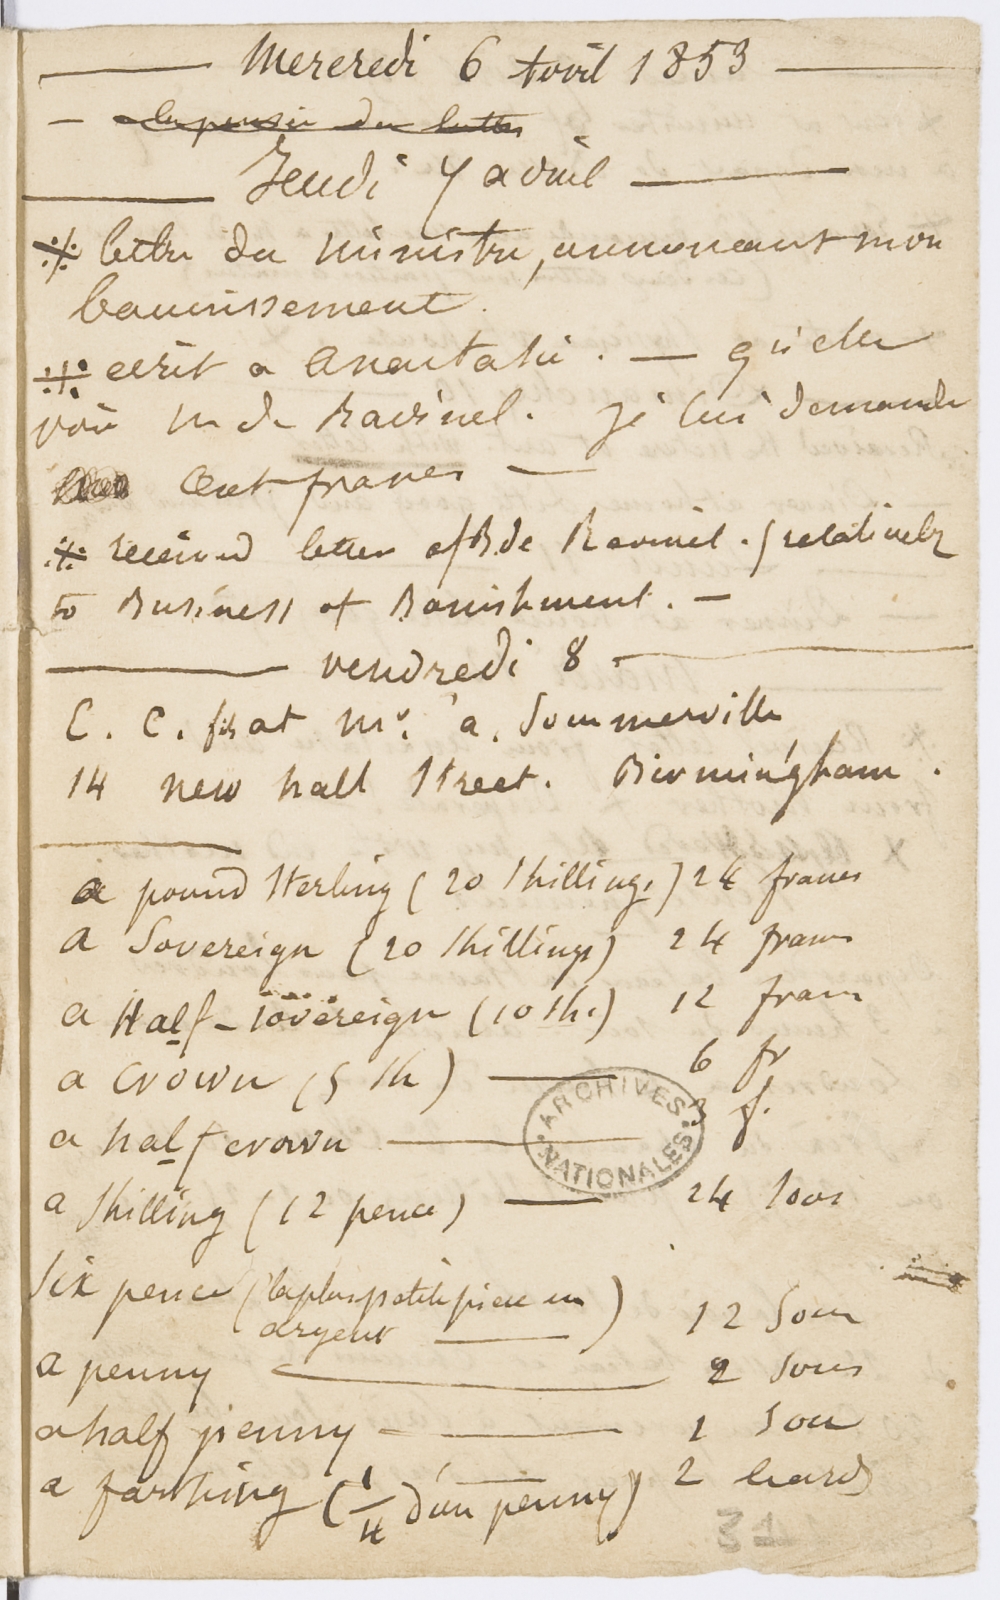 Mercredi 6 Avril 1853
Jeudi 7 avril
lettre du ministre, annonçant mon
bannissement.
ecrit a Anastasie. — qu'elle
voie m de Ravinel. je lui demande
Cent francs —
received letter of B de Ravinel. (relatively
to Business of Banishment. —
vendredi 8
C. C. at Mr. a. Sommerville
14 new hall Street. Birmingham.
a pound Sterling (20 Shillings) 24 francs
a Sovereign (20 Shillings) 24 francs
a Half-sovereign (10 Sh.) 12 francs
a crown (5 Sh) — 6 fr
a half crown — 3 f.
ARCHIVES NATIONALES
a Shilling (12 pence) — 24 sous
Six pence (la plus petite pièce en
argent —) 12 Sous
a penny — 2 sous
a half penny — 1 Sou
a farthing (1/4 d'un penny) 2 liards
31